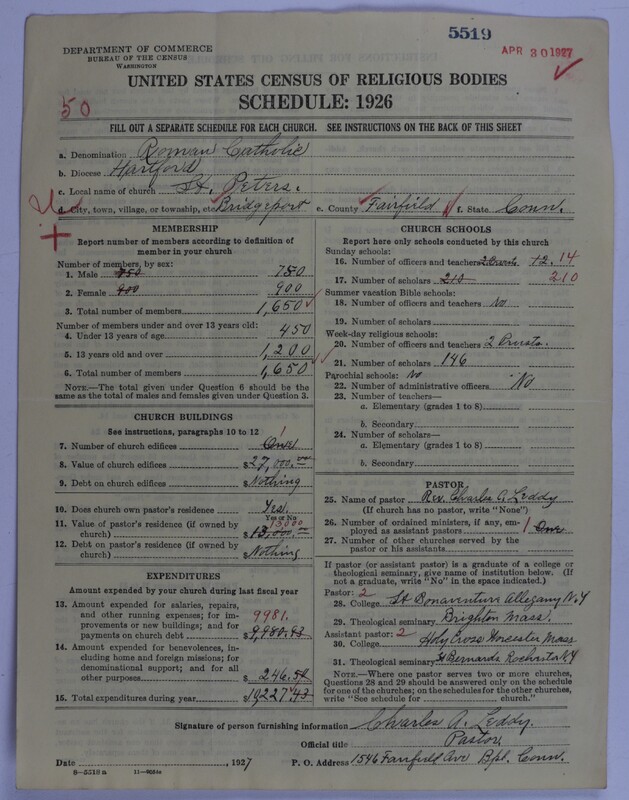 5519
APR 30 1927
DEPARTMENT OF COMMERCE
BUREAU OF THE CENSUS
WASHINGTON
UNITED STATES CENSUS OF RELIGIOUS BODIES
SCHEDULE: 1926
50
FILL OUT A SEPARATE SCHEDULE FOR EACH CHURCH. SEE INSTRUCTIONS ON THE BACK OF THIS SHEET
a. Denomination Roman Catholic
b. Diocese Hartford
c. Local name of church St. Peters.
d. City, town, village, or township, etc. Bridgeport e. County Fairfield f. State Conn.
MEMBERSHIP
Report number of members according to definition of member in your church
Number of members, by sex:
1. Male 750 750
2. Female 900 900
3. Total number of members 1,650
Number of members under and over 13 years old:
4. Under 13 years of age 450
5. 13 years old and over 1,200
6. Total number of members 1,650
NOTE.—The total given under Question 6 should be the same as the total of males and females given under Question 3.
CHURCH BUILDINGS
See instructions, paragraphs 10 to 12
7. Number of church edifices One 1
8. Value of church edifices $27,000.00
9. Debt on church edifices $Nothing
10. Does church own pastor's residence? Yes.
Yes or No
11. Value of pastor's residence (if owned by church) 15000 $15,000.00
12. Debt on pastor's residence (if owned by church) $Nothing
EXPENDITURES
Amount expended by church during last fiscal year
13. Amount expended for salaries, repairs, and other running expenses; for improvements or new buildings; and for payments on church debt 9981.
14. Amount expended for benevolences, including home and foreign missions; for denominational support; and for all other purposes $246.50
15. Total expenditures during year $10,227.43
CHURCH SCHOOLS
Report here only schools conducted by this church
Sunday schools:
16. Number of officers and teachers 12. 14
17. Number of scholars 210 210
Summer vacation Bible schools:
18. Number of officers and teachers No
19. Number of scholars
Week-day religious schools:
20. Number of officers and teachers 2 Priests.
21. Number of scholars 146
Parochial schools: No
22. Number of administrative officers No
23. Number of teachers—
a. Elementary (grades 1 to 8)
b. Secondary
24. Number of scholars—
a. Elementary (grades 1 to 8)
b. Secondary
PASTOR
25. Name of pastor Rev. Charles A. Leddy
(If church has no pastor, write "None")
26. Number of ordained ministers, if any, employed as assistant pastors 1 One
27. Number of other churches served by the pastor or his assistants
If pastor (or assistant pastor) is a graduate of a college or theological seminary, give name of institution below. (If not a graduate, write "No" in the space indicated.)
Pastor: 2
28. College St Bonaventure Allegany N.Y
29. Theological seminary Brighton Mass.
Assistant pastor: 2
30. College Holy Cross Worcester Mass
31. Theological seminary St Bernards Rochester N.Y
NOTE.—Where one pastor serves two or more churches, Questions 28 and 29 should be answered only on the schedule for one of the churches; on the schedules for the other churches, write "See schedule for church."
Signature of person furnishing information Charles A. Leddy.
Official title Pastor
Date , 1927 P. O. Address 1546 Fairfield Ave Bpt. Conn.